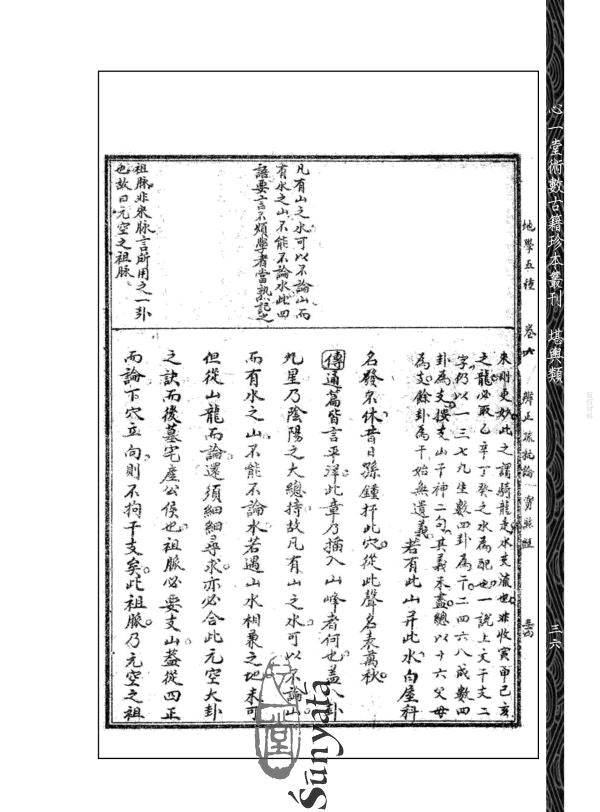 心一堂術數古籍珍本叢刊 堪輿類
三六
地學五種 卷六 辨正疏批論 寶照經
凡有山之水可以不論山而
有水之山不能不論水此四
語要言不煩學者當熟記之
祖脉非來脉言所用之一卦
也故曰元空之祖脉
來則更妙此之謂騎龍走水支流也非收寅申巳亥
之龍必取乙辛丁癸之水為配也一說上文干支二
字乃以一三七九生數四卦為干二四六八成數四
卦為支接支山干神二句其義未盡總以十六父母
為支餘卦為干始無遺義 若有此山并此水白屋科
名發不休昔日孫鍾扦此穴從此聲名表萬秋
傳通篇皆言平洋此章乃插入山峰者何也蓋八卦
九星乃陰陽之大總持故凡有山之水可以不論山
而有水之山不能不論水若遇山水相兼之地未可
但從山龍而論還須細細尋求亦必合此元空大卦
之訣而後墓宅產公侯也祖脈必要支山蓋從四正
而論下穴立向則不拘干支矣此祖脈乃元空之祖
一堂
Śūnyatā